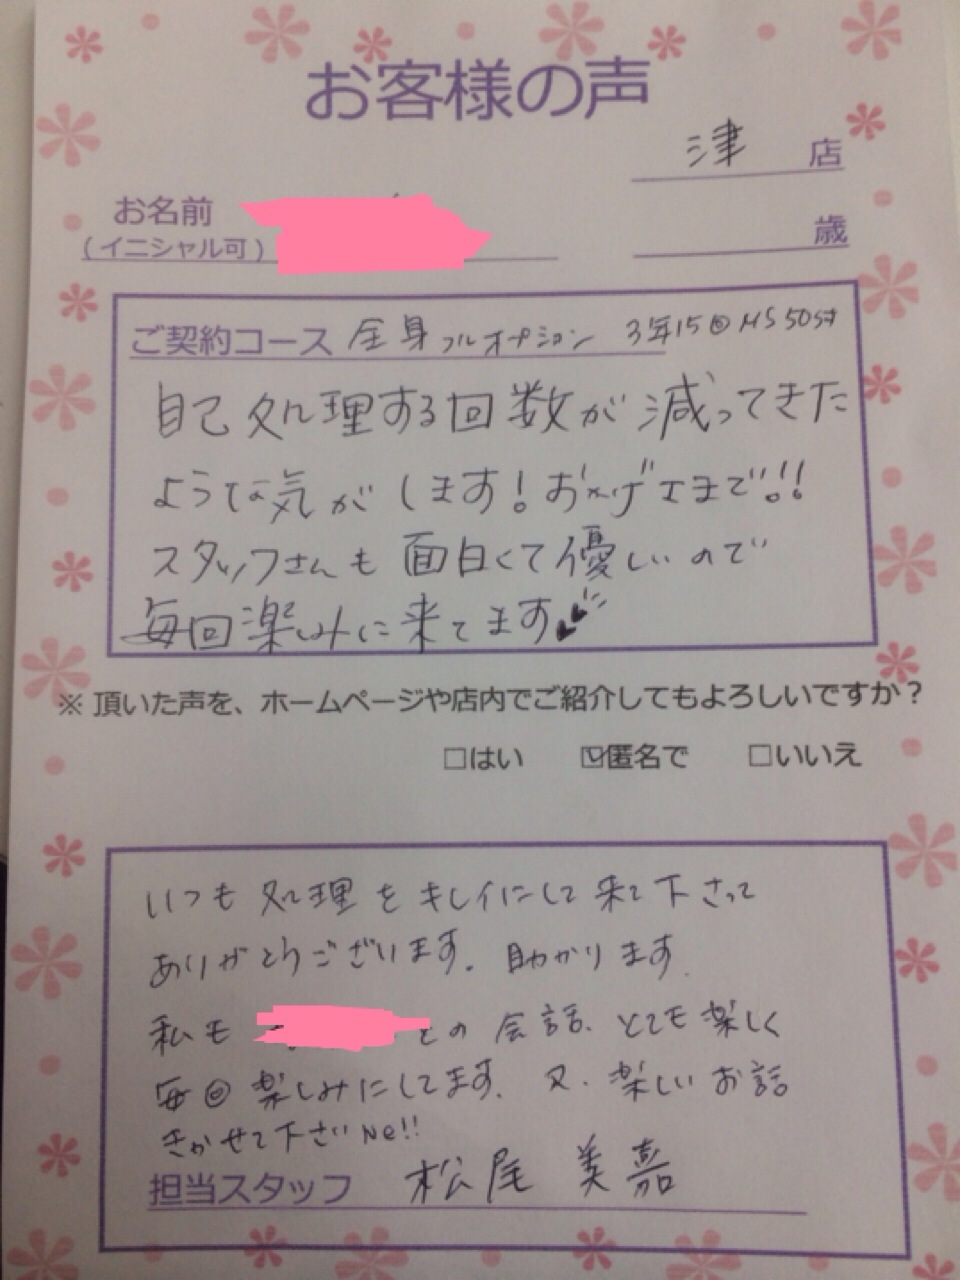 お客様の声
津 店
お名前
(イニシャル可)
歳
ご契約コース 全身フルオプション 3年15回 MS50分
自己処理する回数が減ってきた
ような気がします!おかげさまで!!
スタッフさんも面白くて優しいので
毎回楽しみに来てます
※ 頂いた声を、ホームページや店内でご紹介してもよろしいですか?
□はい ☑匿名で □いいえ
いつも処理をキレイにして来て下さって
ありがとうございます。助かります。
私も との会話、とても楽しく
毎回楽しみにしてます。又、楽しいお話
きかせて下さいNe!!
担当スタッフ 松尾 美嘉